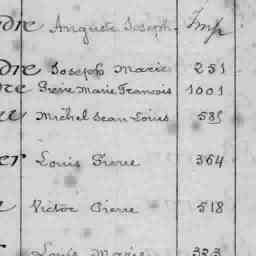 dre Auguste Joseph. Imp
dre Joseph Marie 251
re Pierre Marie Francois 1001
ue Michel Jean Louis 535
er Louis Pierre 364
Victor Pierre 518
Louis Marie 333